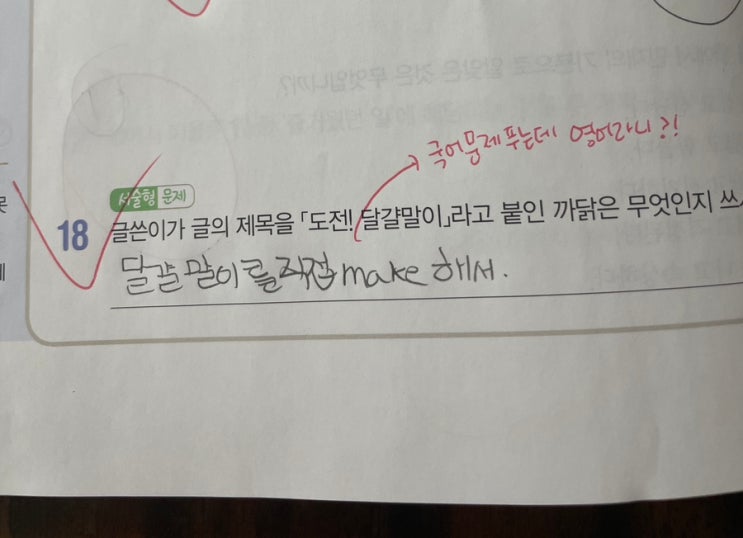 국어문제푸는데 영어라니?!
서술형 문제
18 글쓴이가 글의 제목을 「도전! 달걀말이」라고 붙인 까닭은 무엇인지 쓰
달걀말이를 직접 make 해서.